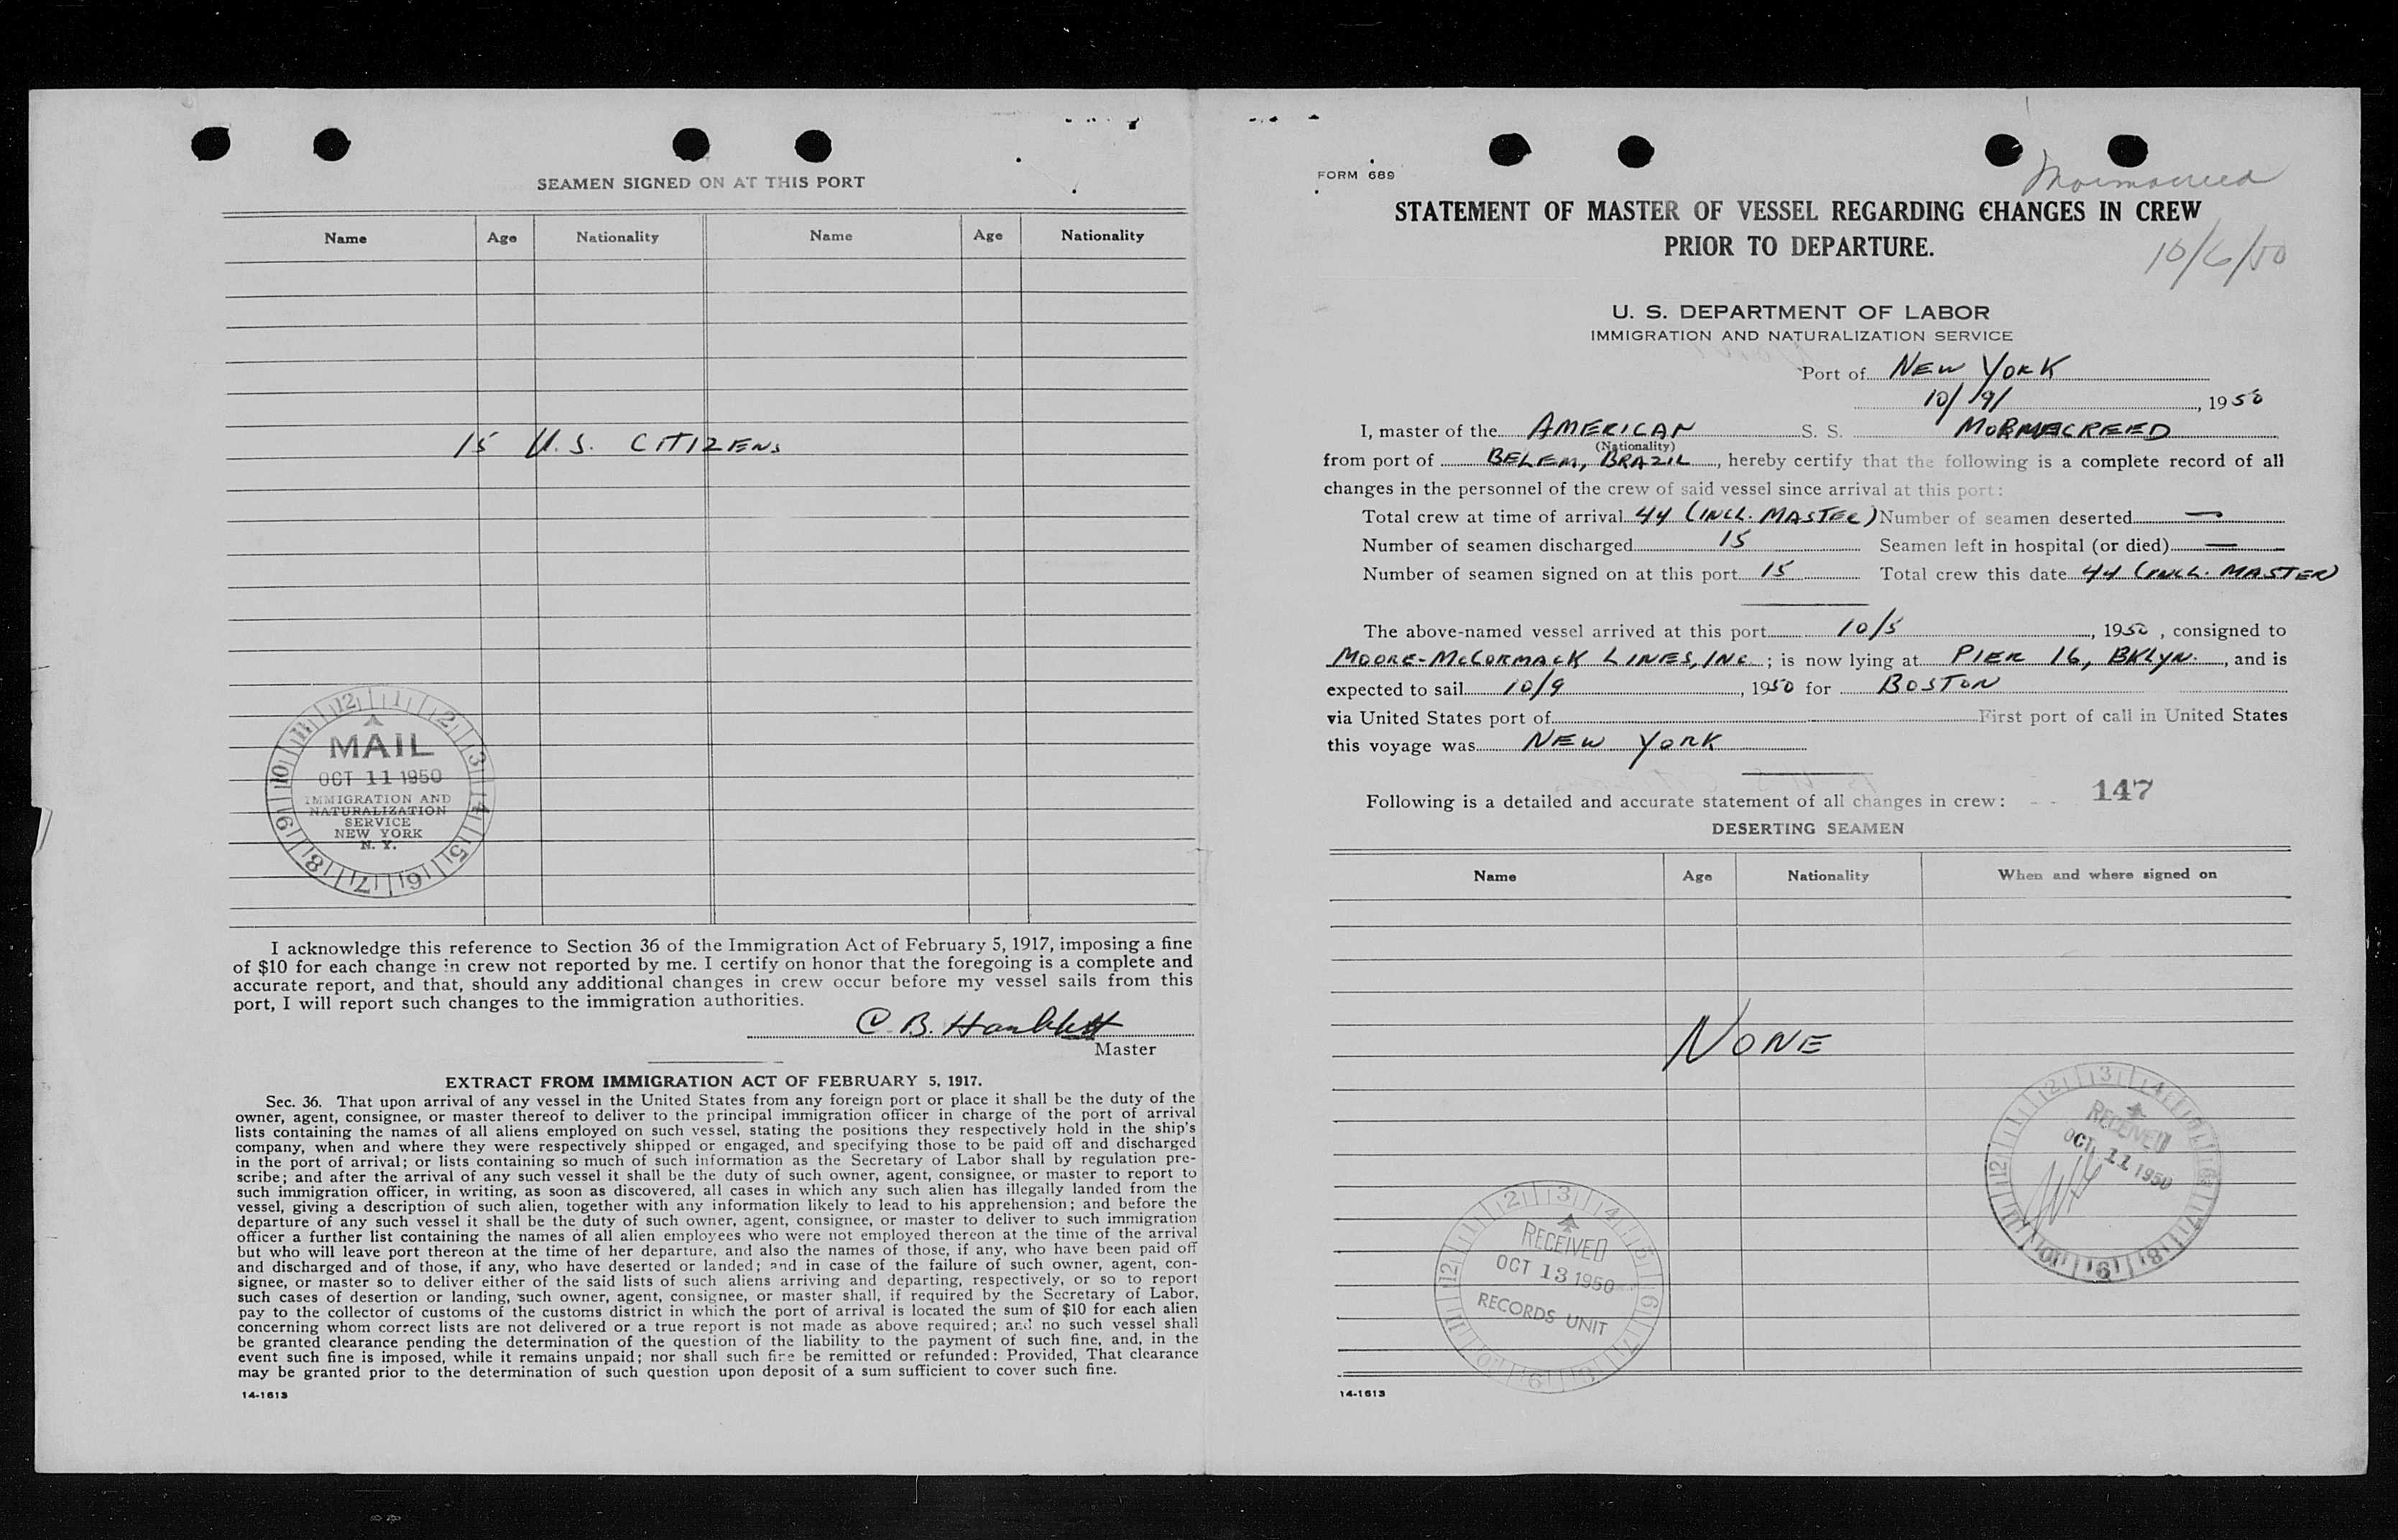 SEAMEN SIGNED ON AT THIS PORT
Name Age Nationality Name Age Nationality
15 U.S. CITIZENS
MAIL
OCT 11 1950
IMMIGRATION AND
NATURALIZATION
SERVICE
NEW YORK
N. Y.
I acknowledge this reference to Section 36 of the Immigration Act of February 5, 1917, imposing a fine
of $10 for each change in crew not reported by me. I certify on honor that the foregoing is a complete and
accurate report, and that, should any additional changes in crew occur before my vessel sails from this
port, I will report such changes to the immigration authorities.
C. B.
Master
EXTRACT FROM IMMIGRATION ACT OF FEBRUARY 5, 1917.
Sec. 36. That upon arrival of any vessel in the United States from any foreign port or place it shall be the duty of the
owner, agent, consignee, or master thereof to deliver to the principal immigration officer in charge of the port of arrival
lists containing the names of all aliens employed on such vessel, stating the positions they respectively hold in the ship's
company, when and where they were respectively shipped or engaged, and specifying those to be paid off and discharged
in the port of arrival; or lists containing so much of such information as the Secretary of Labor shall by regulation pre-
scribe; and after the arrival of any such vessel it shall be the duty of such owner, agent, consignee, or master to report to
such immigration officer, in writing, as soon as discovered, all cases in which any such alien has illegally landed from the
vessel, giving a description of such alien, together with any information likely to lead to his apprehension; and before the
departure of any such vessel it shall be the duty of such owner, agent, consignee, or master to deliver to such immigration
officer a further list containing the names of all alien employees who were not employed thereon at the time of the arrival
but who will leave port thereon at the time of her departure, and also the names of those, if any, who have been paid off
and discharged and of those, if any, who have deserted or landed; and in case of the failure of such owner, agent, con-
signee, or master so to deliver either of the said lists of such aliens arriving and departing, respectively, or so to report
such cases of desertion or landing, such owner, agent, consignee, or master shall, if required by the Secretary of Labor,
pay to the collector of customs of the customs district in which the port of arrival is located the sum of $10 for each alien
concerning whom correct lists are not delivered or a true report is not made as above required; and no such vessel shall
be granted clearance pending the determination of the question of the liability to the payment of such fine, and, in the
event such fine is imposed, while it remains unpaid; nor shall such fine be remitted or refunded: Provided, That clearance
may be granted prior to the determination of such question upon deposit of a sum sufficient to cover such fine.
14-1613
FORM 689
Mormacreed
STATEMENT OF MASTER OF VESSEL REGARDING CHANGES IN CREW
PRIOR TO DEPARTURE.
10/6/50
U. S. DEPARTMENT OF LABOR
IMMIGRATION AND NATURALIZATION SERVICE
Port of NEW YORK
10/9/, 1950
I, master of the AMERICAN S. S. MORMACREED
(Nationality)
from port of BELEM, BRAZIL, hereby certify that the following is a complete record of all
changes in the personnel of the crew of said vessel since arrival at this port:
Total crew at time of arrival 44 (INCL. MASTER) Number of seamen deserted —
Number of seamen discharged 15 Seamen left in hospital (or died) —
Number of seamen signed on at this port 15 Total crew this date 44 (INCL. MASTER)
The above-named vessel arrived at this port 10/5, 1950, consigned to
MOORE-McCORMACK LINES, INC.; is now lying at PIER 16, BKLYN., and is
expected to sail 10/9, 1950 for BOSTON
via United States port of First port of call in United States
this voyage was NEW YORK
Following is a detailed and accurate statement of all changes in crew: 147
DESERTING SEAMEN
Name Age Nationality When and where signed on
NONE
RECEIVED
OCT 11 1950
RECEIVED
OCT 13 1950
RECORDS UNIT
14-1613